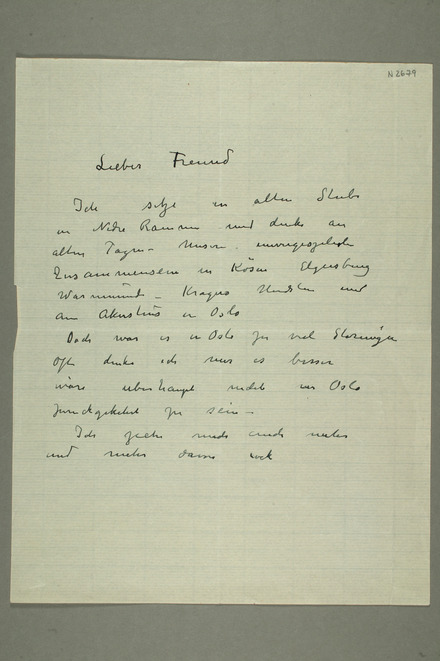 N 2679
Lieber Freund
Ich sitze in alten Stube
in Nedre Ramme und denke an
alten Tagen – Unsere
Zusammensein in Kösen Elgersburg
Warnemünde – Kragerö Hvidsten und
am in Oslo
Doch war es in Oslo zu viel Störungen
Oft denke ich mir es besser
wäre überhaupt nicht in Oslo
zurückgekehrt zu sein –
Ich ziehe mich auch mehr
und mehr